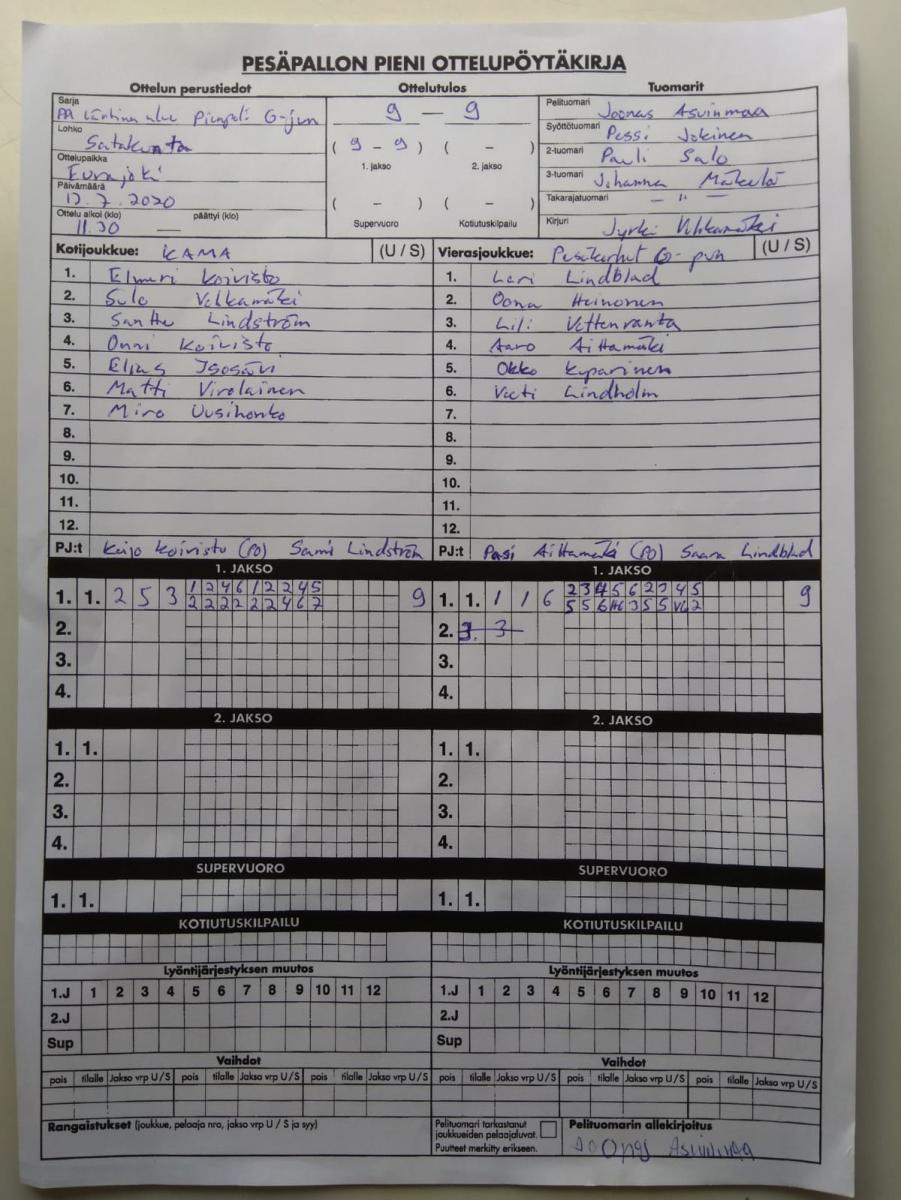 PESÄPALLON PIENI OTTELUPÖYTÄKIRJA
Ottelun perustiedot Ottelutulos Tuomarit
Sarja Pienpeli G-jun
Lohko Satakunta
Ottelupaikka Eurajoki
Päivämäärä 12.7.2020
Ottelu alkoi (klo) päättyi (klo)
11.30 —
9 — 9
( 9 - 9 ) ( - )
1. jakso 2. jakso
( - ) ( - )
Supervuoro Kotiutuskilpailu
Pelituomari Joonas Asuinmaa
Syöttötuomari Pessi Jokinen
2-tuomari Pauli Salo
3-tuomari Johanna Mäkelä
Takarajatuomari — " —
Kirjuri Jyrki
Kotijoukkue: KAMA (U / S)
1. Elmeri Koivisto
2. Sulo
3. Santtu Lindström
4. Onni Koivisto
5. Elias
6. Matti Virolainen
7. Miro Uusihonko
8.
9.
10.
11.
12.
PJ:t Keijo Koivisto (PO) Sami Lindström
Vierasjoukkue: Pesäkarhut G- pun (U / S)
1. Lari Lindblad
2. Oona Heinonen
3. Lili Vettenranta
4. Aaro Aittamäki
5. Okko Kyparinen
6. Veeti Lindholm
7.
8.
9.
10.
11.
12.
PJ:t Pasi Aittamäki (PO) Saara Lindblad
1. JAKSO
1. 1. 2 5 3 1 2 4 6 1 2 2 4 5 9
2 2 2 2 2 2 4 6 7
2.
3.
4.
1. JAKSO
1. 1. 1 1 6 2 3 4 5 6 2 3 4 5 9
5 5 6 H6 3 5 5 V6 2
2. 3. 3
3.
4.
2. JAKSO
1. 1.
2.
3.
4.
2. JAKSO
1. 1.
2.
3.
4.
SUPERVUORO
1. 1.
SUPERVUORO
1. 1.
KOTIUTUSKILPAILU
KOTIUTUSKILPAILU
Lyöntijärjestyksen muutos
1.J 1 2 3 4 5 6 7 8 9 10 11 12
2.J
Sup
Lyöntijärjestyksen muutos
1.J 1 2 3 4 5 6 7 8 9 10 11 12
2.J
Sup
Vaihdot
pois tilalle Jakso vrp U/S pois tilalle Jakso vrp U/S pois tilalle Jakso vrp U/S
Vaihdot
pois tilalle Jakso vrp U/S pois tilalle Jakso vrp U/S pois tilalle Jakso vrp U/S
Rangaistukset (joukkue, pelaaja nro, jakso vrp U / S ja syy)
Pelituomari tarkastanut
joukkueiden pelaajaluvat.
Puutteet merkitty erikseen.
Pelituomarin allekirjoitus